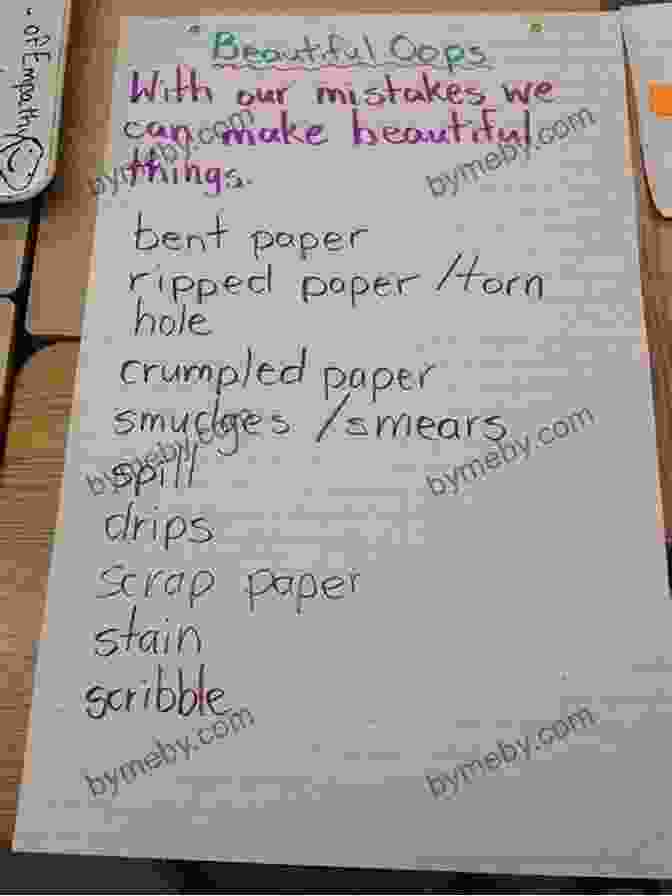 of Empathy
Beautiful Oops
With our mistakes we
can make beautiful
things.
bent paper
ripped paper / torn
hole
crumpled paper
smudges / smears
spill
drips
scrap paper
stain
scribble
bymeby.com
bymeby.com
bymeby.com
bymeby.com
bymeby.com
bymeby.com